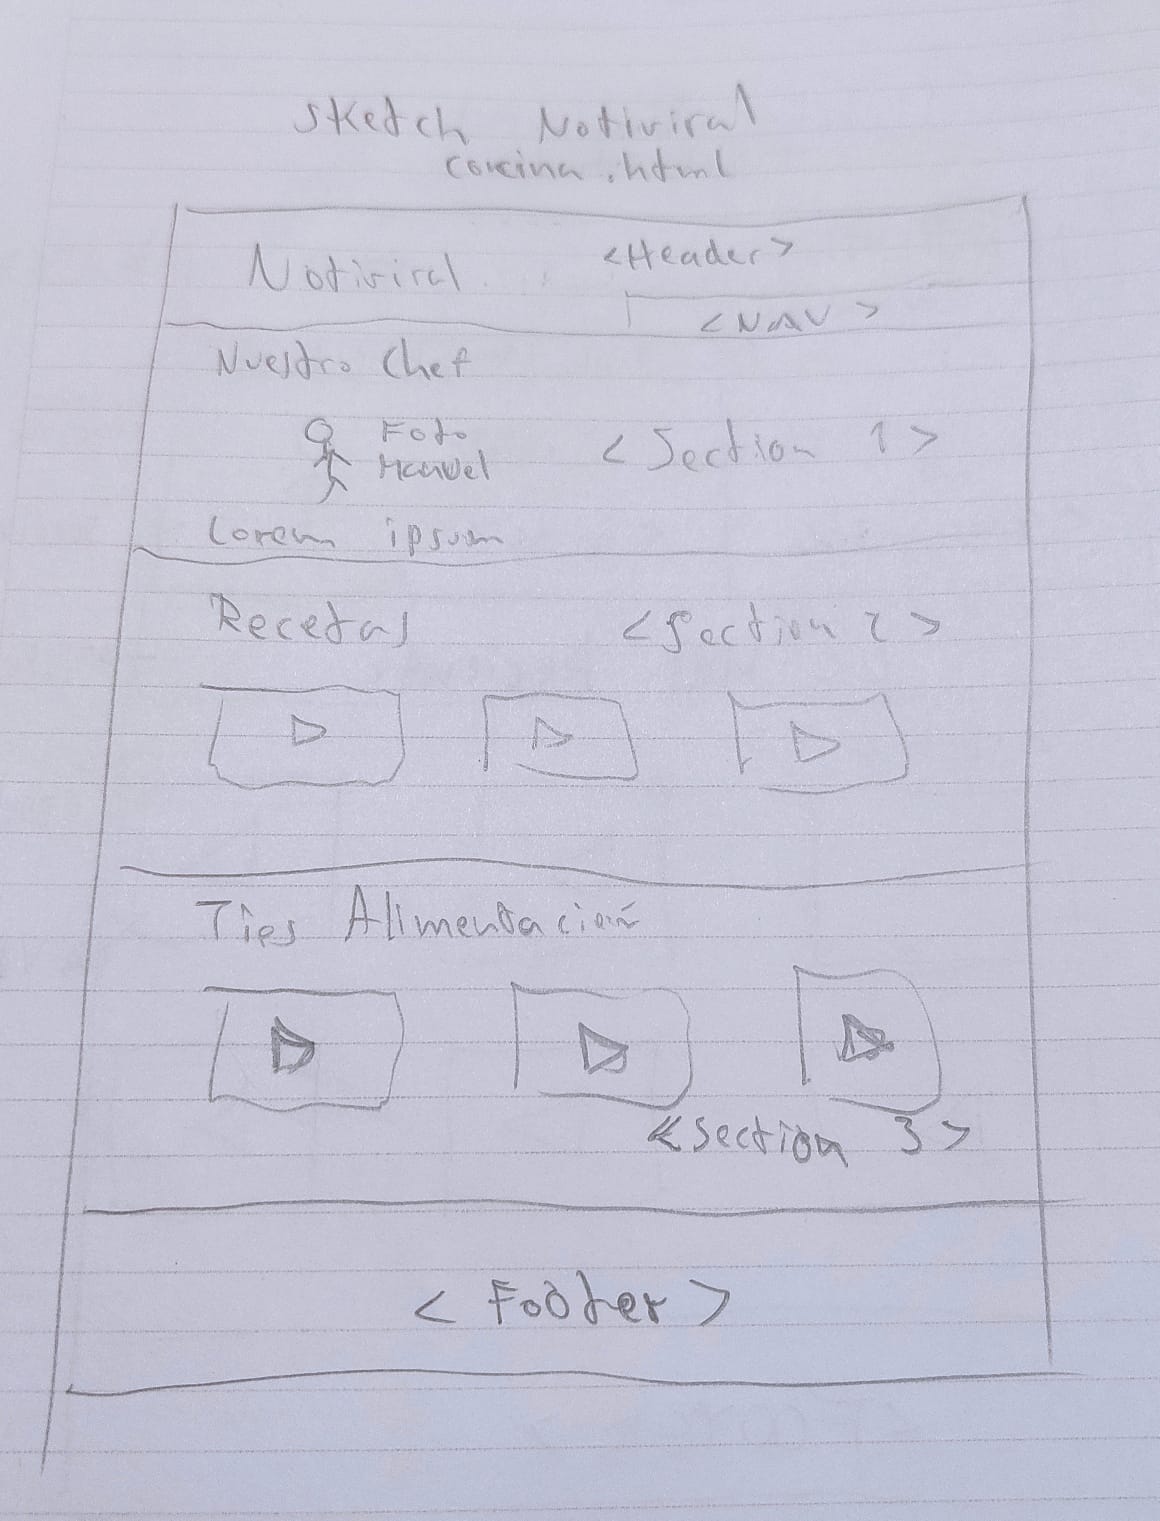 Sketch Notiviral
cocina.html
Notiviral <Header>
<NAV>
Nuestro Chef
Foto
Manuel
<Section 1>
Lorem ipsum
Recetas <Section 2>
Tips Alimentación
<section 3>
<Footer>